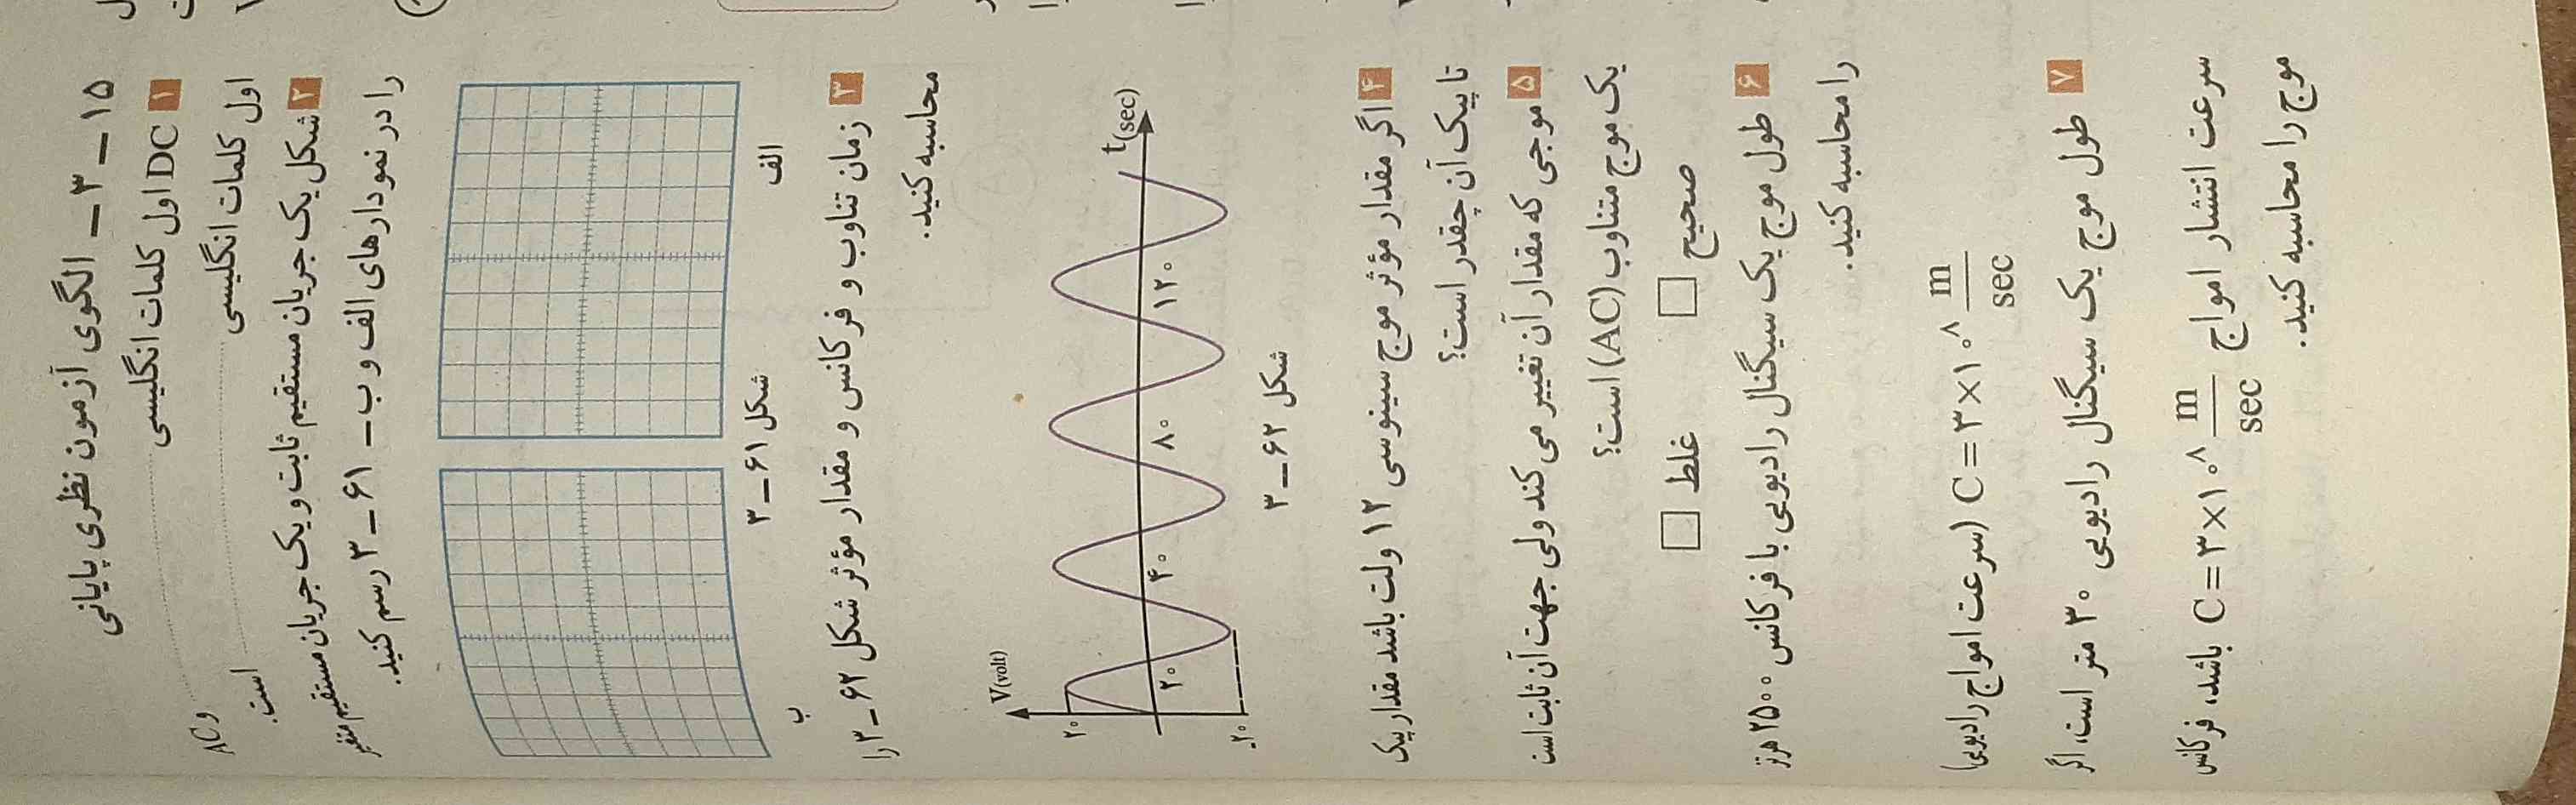 ۱۵ – ۳ – الگوی آزمون نظری پایانی
۱ DC اول کلمات انگلیسی .................... و AC
اول کلمات انگلیسی .................... است.
۲ شکل یک جریان مستقیم ثابت و یک جریان مستقیم متغیر
را در نمودارهای الف و ب – ۶۱ – ۳ رسم کنید.
الف
ب
شکل ۶۱ – ۳
۳ زمان تناوب و فرکانس و مقدار مؤثر شکل ۶۲ – ۳ را
محاسبه کنید.
V(volt)
۲۰
۲۰ ۴۰ ۸۰ ۱۲۰
t(sec)
-۲۰
شکل ۶۲ – ۳
۴ اگر مقدار مؤثر موج سینوسی ۱۲ ولت باشد مقدار پیک
تا پیک آن چقدر است؟
۵ موجی که مقدار آن تغییر می کند ولی جهت آن ثابت است
یک موج متناوب (AC) است؟
صحیح □ غلط □
۶ طول موج یک سیگنال رادیویی با فرکانس ۲۵۰۰ هرتز
را محاسبه کنید.
C = ۳×۱۰^۸ m/sec (سرعت امواج رادیویی)
۷ طول موج یک سیگنال رادیویی ۳۰ متر است، اگر
سرعت انتشار امواج C = ۳×۱۰^۸ m/sec باشد، فرکانس
موج را محاسبه کنید.